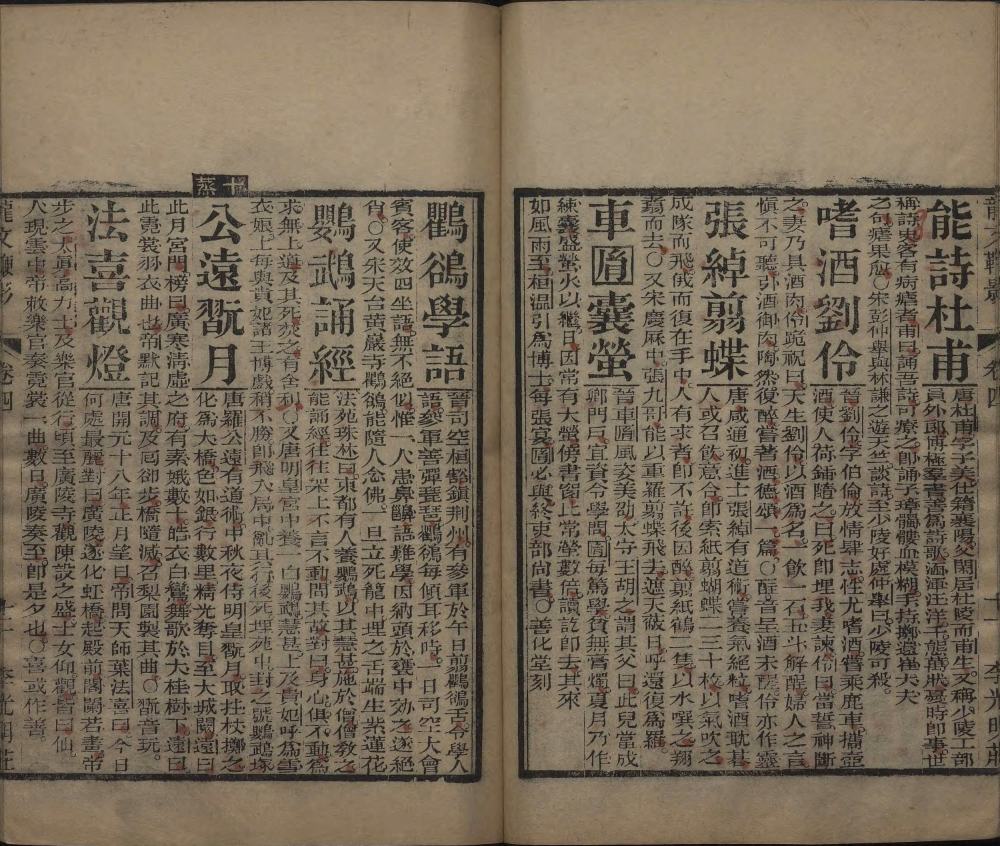 龍文鞭影
卷四
十一
李光明莊
能詩杜甫
唐杜甫字子美本籍襄陽父閑居杜陵而甫生又稱少陵工部
員外郎博極羣書善為詩歌涵渾汪洋千態萬狀憂時即事世
稱詩史客有病瘧者甫曰誦吾詩可療之即誦子璋髑髏血模糊手持擲還崔大夫
之句瘧果愈〇宋彭仲舉與林謙之遊天竺談詩至少陵好處仲舉曰少陵可殺
嗜酒劉伶
晉劉伶字伯倫放情肆志性尤嗜酒嘗乘鹿車攜壺
酒使人荷鍤隨之曰死即埋我妻諫伶曰當誓神斷
之妻乃具酒肉伶跪祝曰天生劉伶以酒為名一飲一石五斗解酲婦人之言
愼不可聽引酒御肉陶然復醉嘗著酒德頌一篇〇酲音呈酒未醒伶亦作靈
張綽翦蝶
唐咸通初進士張綽有道術嘗養氣絕粒嗜酒耽棊
人或召飲意合即索紙翦蝴蝶二三十枚以氣吹之
成隊而飛俄而復在手中人有求者即不許後因醉翦紙鶴二隻以水噀之翔
翥而去〇又宋慶麻中張九哥能以重羅翦蝶飛去遮天蔽日呼還復為羅
車𦙍囊螢
晉車𦙍風姿美劭太守王胡之謂其父曰此兒當成
卿門戶宜資令學問𦙍每篤學貧無膏燭夏月乃作
練囊盛螢火以繼日因常有大螢傍書窗比常螢數倍讀訖即去其來
如風雨至桓溫引為博士每張宴𦙍必與終吏部尚書〇善化堂刻
十蒸
鸜鵒學語
晉司空桓豁鎭荆州有參軍於午日剪鸜鵒舌令學人
語參軍善彈琵琶鸜鵒每傾耳移時一日司空大會
賓客使效四坐語無不絕似惟一人患鼻齆語難學因納頭於甕中効之遂絕
肖〇又宋天台黃巖寺鸜鵒能隨人念佛一旦立死籠中埋之舌端生紫蓮花
鸚鵡誦經
法苑珠林曰東都有人養鸚鵡以其慧甚施於僧僧教之
能誦經往往架上不言不動問其故對曰身心俱不動為
求無上道及其死焚之有舍利〇又唐明皇宮中養一白鸚鵡慧甚上及貴妃呼為雪
衣娘上每與貴妃諸王博戲稍不勝即飛入局中亂其行後死埋苑中封之號鸚鵡塚
公遠翫月
唐羅公遠有道術中秋夜侍明皇翫月取拄杖擲之
化為大橋色如銀行數里精光奪目至大城闕遠曰
此月宮門榜曰廣寒清虛之府有素娥數十皓衣白鸞舞歌於大桂樹下遠曰
此霓裳羽衣曲也帝默記其調及囘卻步橋隨滅召梨園製其曲〇翫音玩
法喜觀燈
唐開元十八年正月望日帝問天師葉法喜曰今日
何處最麗對曰廣陵遂化虹橋起殿前閣闌若畫帝
步之太眞高力士及樂官從行頃至廣陵寺觀陳設之盛士女仰觀皆曰仙
人現雲中帝敕樂官奏霓裳一曲數日廣陵奏至即是夕也〇喜或作善
龍文鞭影
卷四
十一
李光明莊